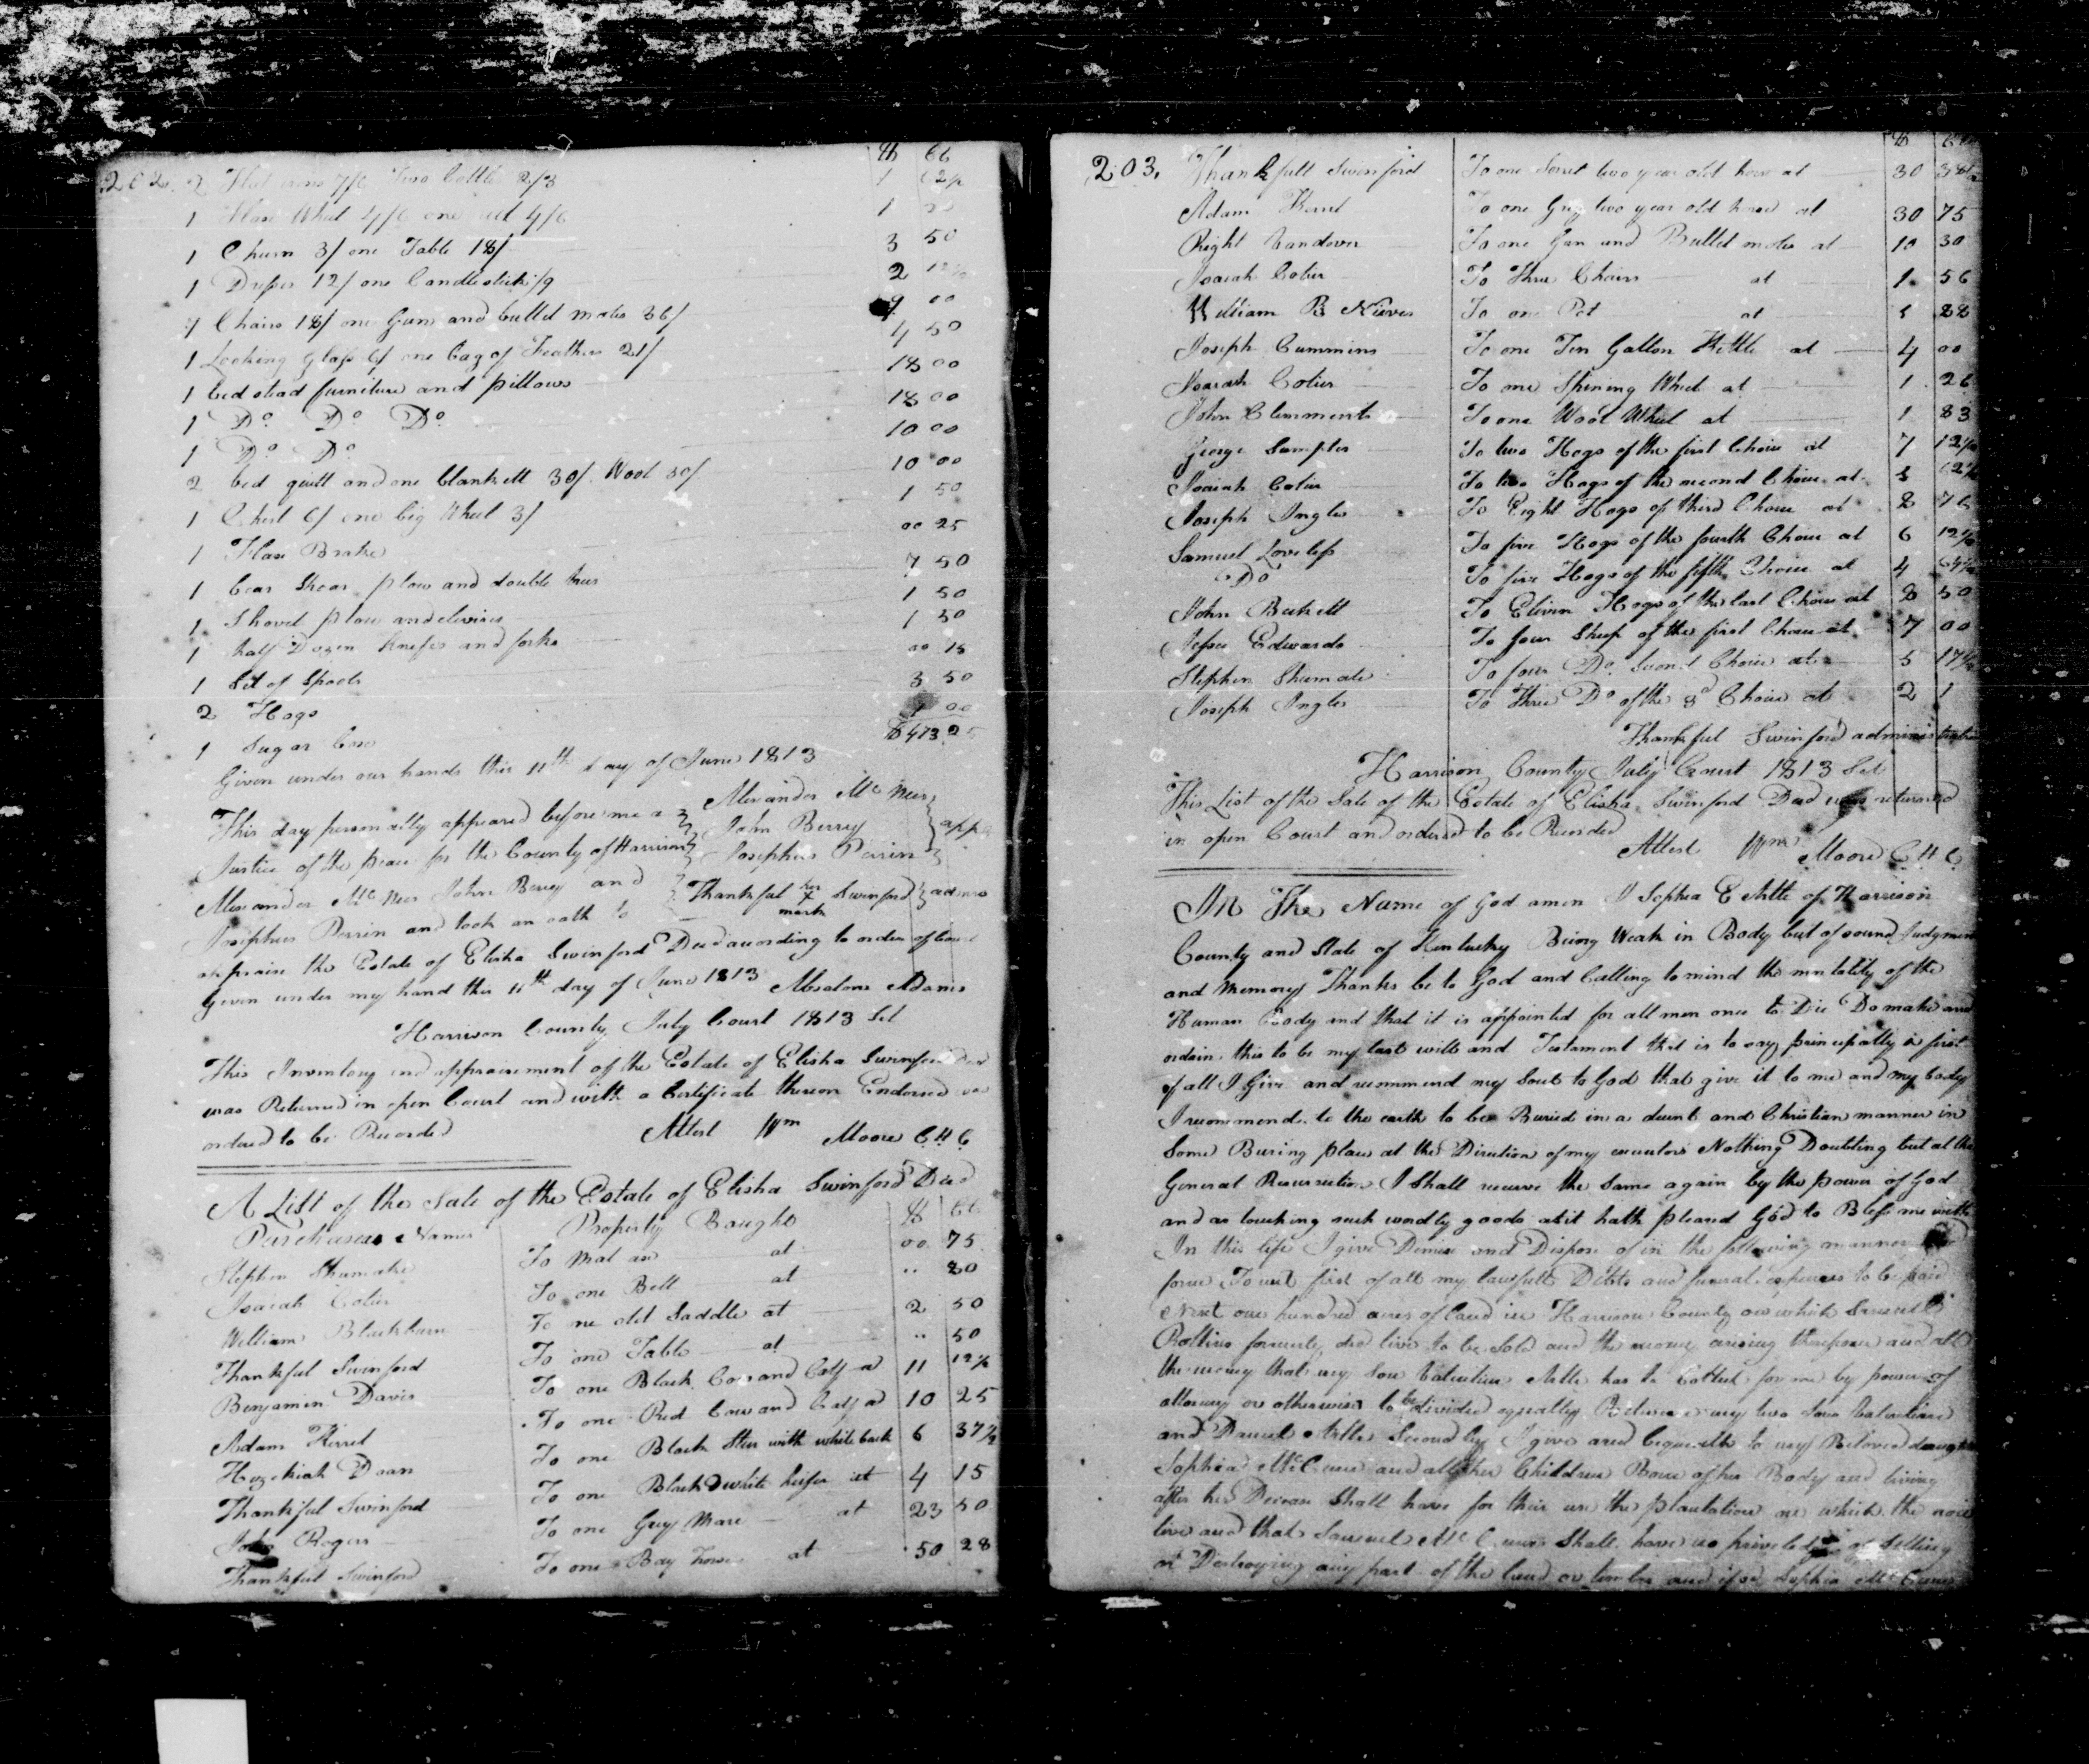 202. 2 Flat irons 7/6 Two Bottles 2/3 1 62½
1 Flax Wheel 4/6 one reel 4/6 1 50
1 Churn 3/ one Table 18/ 3 50
1 Dresser 12/ one Candlestick /9 2 12½
7 Chairs 18/ one Gun and bullet moles 36/ 9 00
1 Looking glass 6/ one bag of Feathers 21/ 4 50
1 bed stead furniture and pillows 18 00
1 Do Do Do 18 00
1 Do Do 10 00
2 bed quilt and one blankett 30/ Wool 30/ 10 00
1 Chest 6/ one big Wheel 3/ 1 50
1 Flax Brake 00 25
1 bear Shear plow and double trees 7 50
1 Shovel plow and clevises 1 50
1 half Dozen knifes and forks 1 50
1 Set of Spools 00 18
2 Hogs 3 50
1 Sugar box 1 00
$473 25
Given under our hands this 11th day of June 1813
This day personally appeared before me a Alexander McNees
Justice of the peace for the County of Harrison John Berry
Josephus Perrin
Alexander McNees John Berry and Thankful her x mark Swinford
Josephus Perrin and took an oath to
appraise the Estate of Elisha Swinford Decd according to order of Court
Given under my hand this 11th day of June 1813 Absalom Adams
Harrison County July Court 1813 Sct
This Inventory and appraisement of the Estate of Elisha Swinford Decd
was Returned in open Court and with a Certificate thereon Endorsed
ordered to be Recorded Attest Wm Moore C H C
A List of the Sale of the Estate of Elisha Swinford Decd
Purchasers Names Property Bought $ Cts
Stephen Shumate To Mat axe at 00 75
Isaiah Colier To one Bell at .. 80
William Blackburn To one old Saddle at 2 50
Thankful Swinford To one Table at .. 50
Benjamin Davis To one Black Cow and Calf at 11 12½
Adam Kirrel To one Red Cow and Calf at 10 25
Hezekiah Doan To one Black Steer with white back 6 37½
Thankful Swinford To one Black & white heifer at 4 15
John Rogers To one Grey Mare at 23 50
Thankful Swinford To one Bay horse at 50 28
203. Thankfull Swinford To one Sorrel two year old horse at 30 38½
Adam To one Grey two year old horse at 30 75
Right Vandover To one Gun and Bullet moles at 10 30
Isaiah Colier To three Chairs at 1 56
William B Nieves To one Pot at 1 28
Joseph Cummins To one Ten Gallon Kettle at 4 00
Isaiah Colier To one Spining Wheel at 1 26
John Clemments To one Wool Wheel at 1 83
George Sampler To two Hogs of the first Choice at 7 12½
Isaiah Colier To two Hogs of the second Choice at 5 62½
Joseph Ingles To Eight Hogs of third Choice at 8 76
Samuel Loveless To five Hogs of the fourth Choice at 6 12½
Do To five Hogs of the fifth Choice at 4
John Beckett To Eleven Hogs of the last Choice at 8 50
Jesse Edwards To four Sheep of the first Choice at 7 00
Stephen Shumate To four Do Second Choice at 5 17½
Joseph Ingles To Three Do of the 3d Choice at 2 1
Thankful Swinford administratrix
Harrison County July Court 1813 Sct
This List of the Sale of the Estate of Elisha Swinford Decd was returned
in open Court and ordered to be Recorded
Attest Wm Moore C H C
In The Name of God amen I Sophia of Harrison
County and State of Kentucky Being Weak in Body but of sound Judgment
and Memory Thanks be to God and Calling to mind the mortality of the
Human Body and that it is appointed for all men once to Die Do make and
ordain this to be my last will and Testament that is to say principally & first
of all I Give and recommend my Soul to God that give it to me and my body
I recommend to the earth to be Buried in a decent and Christian manner in
Some Buring place at the Direction of my executors Nothing Doubting but at the
General Resurrection I Shall receive the Same again by the power of God
and as touching such wordly goods as it hath pleased God to Bless me with
In this life I give Demise and Dispose of in the following manner and
form To wit first of all my lawfull Debts and funeral expences to be paid
Next one hundred acres of land in Harrison County on which Samuel
Rollins formerly did live to be Sold and the money arising therefrom and all
the money that my Son Valentine has to Collect for me by power of
attorney or otherwise to be divided equally Between my two Sons Valentine
and Daniel Secondly I give and bequeath to my Beloved daughter
Sophia McCune and all her Children Born of her Body and living
after her Decease Shall have for their use the plantation on which she now
live and that Samuel McCune Shall have no priviledge of Selling
or Destroying any part of the land or timber and if sd Sophia McCune